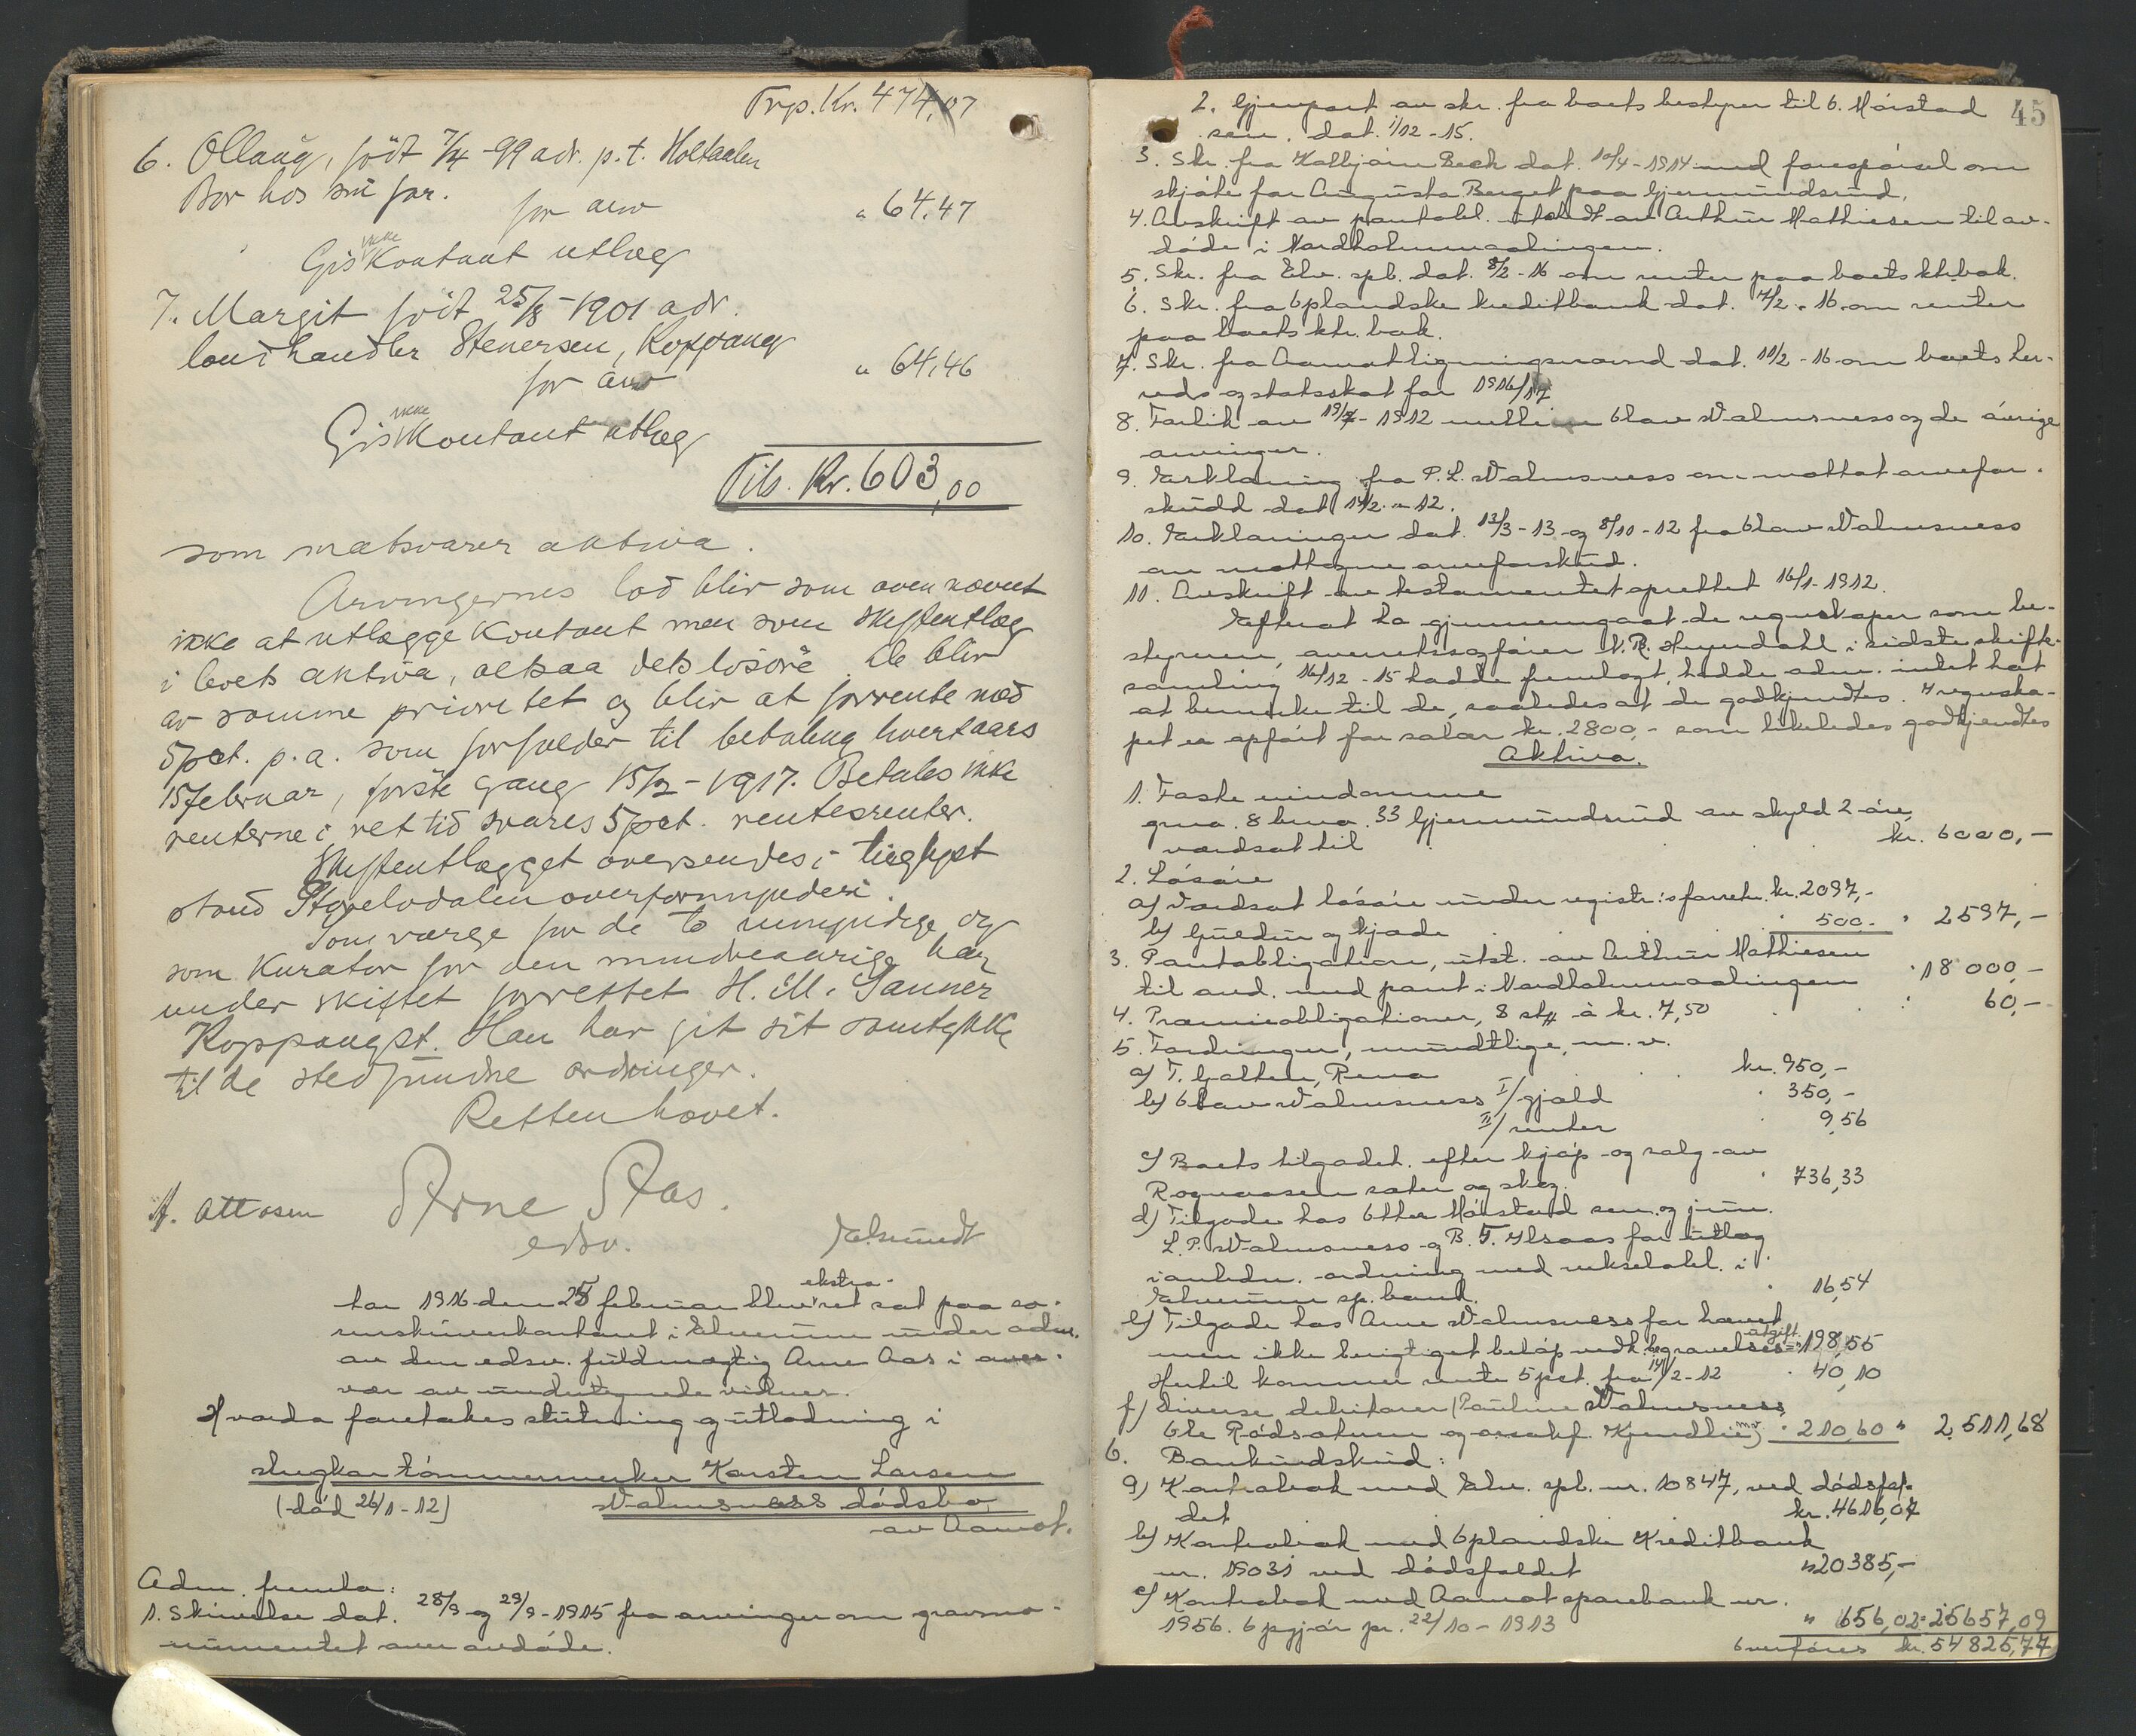 Trp. Kr. 474,07
6. Ollaug, født 7/4-99 adr. p.t. Holtaalen
Bor hos sin far.
for arv " 64,47
Gis ikke kontant utlæg
7. Margit født 25/8-1901 adr.
landhandler Stenersen, Koppang
for arv " 64,46
Gis ikke kontant utlæg
Tils. Kr. 603,00
som motsvarer aktiva.
Arvingernes lod blir som oven nævnt
ikke at utlægge kontant men som skifteutlæg
i boets aktiva, altsaa dets løsøre. De blir
av samme prioritet og blir at forrente med
5 pct. p.a. som forfalder til betaling hvert aars
15 februar, første gang 15/2-1917. Betales ikke
renterne i ret tid svares 5 pct. rentesrenter.
Skifteutlægget oversendes i tinglyst
stand Storelvdalen overformynderi.
Som værge for de to umyndige og
som kurator for den mindreaarige har
under skiftet forrettet H. M. Sanner
Koppangst. Han har git sit samtykke
til de stedfundne ordninger.
Retten hævet.
A. Attosen Arne Aas.
edsv. Elsrundt
Aar 1916 den 25 februar blev ekstraret sat paa so-
renskriverkontoret i Elverum under adm.
av den edsv. fuldmægtig Arne Aas i over-
vær av undertegnede vidner.
Hvorda foretokes slutning og utlodning i
ungkar tømmermerker Karsten Larsen
(død 26/1-12) Valmsness dødsbo,
av Aamot.
Adm. fremla:
1. Skrivelse dat. 28/9 og 29/9-1915 fra arvinger om gravmo-
numentet over avdøde.
45
2. Gjenpart av skr. fra boets bestyrer til O. Mørstad
sen. dat. 1/12-15.
3. Skr. fra Kolbjørn Beck dat. 10/4-1914 med forespørsel om
skjøte for Augusta Berget paa Gjermundsrud.
4. Avskrift av pantobl. utstedt av Arthur Mathiesen til av-
døde i Nordholmmaalingen.
5. Skr. fra Elv. spb. dat. 8/2-16 om renter paa boets ktr.bok.
6. Skr. fra Oplandske kreditbank dat. 7/2-16 om renter
paa boets ktr. bok.
7. Skr. fra Aamot ligningsnævnd dat. 11/2-16 om boets her-
reds og statsskat for 1916/17
8. Forlik av 19/7-1912 mellem Olav Valmsness og de øvrige
arvinger.
9. Erklæring fra P. L. Valmsness om mottat arvefor-
skudd dat. 14/2-12.
10. Erklæringer dat. 13/3-13 og 8/10-12 fra Olav Valmsness
om mottagne arveforskud.
11. Avskrift av testamentet oprettet 16/1-1912.
Efterat ha gjennemgaat de regnskaper som be-
styreren, overretssakfører N. R. Heyerdahl i sidste skifte-
samling 16/12-15 hadde fremlagt, hadde adm. intet hat
at bemerke til de, saaledes at de godkjendtes. I regnska-
pet er opført for salær kr. 2800,- som likeledes godkjendtes
Aktiva.
1. Faste eiendomme
gno. 8 bno. 33 Gjermundsrud av skyld 2 øre,
værdsat til kr. 6000,-
2. Løsøre
a) Værdsat løsøre under registr:s forretn. kr. 2097,-
b) Guldur og kjæde " 500.- " 2597,-
3. Pantobligation, utst. av Arthur Mathiesen
til avd. med pant i Nordholmmaalingen " 18000,-
4. Præmieobligationer, 8 stk à kr. 7,50 " 60,-
5. Fordringer, mundtlige, m.v.
a) T. Galten, Rena kr. 950,-
b) Olav Valmsness I/ gjæld " 350,-
II/ renter 9,56
c) Boets tilgodeh. efter kjøp og salg av
Rognaasen sæter og skog. " 736,33
d) Tilgode hos Otter Mørstad sen. og jun.
L. P. Valmsness og B. F. Ilsaas for utlæg
i anledn. ordning med vekselobl. i
Elverum sp. bank. " 16,54
e) Tilgode hos Arne Valmsness for hævet
men ikke berigtiget beløp vedk. begravelses-utgift. " 198,55
Hertil kommer rente 5 pct. fra 14/2-12 " 40,10
f) Diverse debitorer (Pauline Valmsness,
Ole Rødsølmen og overføf. Kjendlie m.v.) " 210,60 " 2.511,68
6. Bankindskud:
a) Kontrabok med Elv. spb. nr. 10847, ved dødsfal-
det kr. 4616,07
b) Kontrabok med Oplandske Kreditbank
nr. 19031 ved dødsfaldet " 20385,-
c) Kontrabok med Aamot sparebank nr.
1956. Opgjør pr. 22/10-1913 " 656,02 = 25657,09
Overføres kr. 54825,77